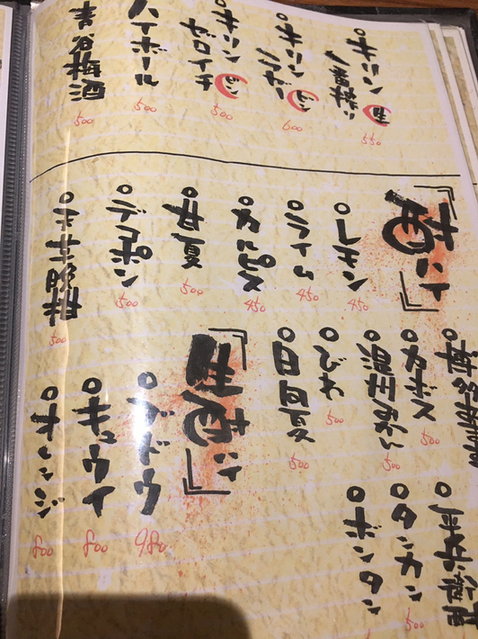 キリン一番搾り 生 550
キリンラガー ビン 600
キリンゼロイチ ビン 500
ハイボール 500
青谷梅酒 500
『酎ハイ』
レモン 450
ライム 450
カルピス 450
甘夏 500
デコポン 500
カボス 500
温州みかん 500
びわ 500
日向夏 500
平兵衛酢
タンカン 500
ボンタン
『生酎ハイ』
ブドウ 980
キュウイ 800
オレンジ 800